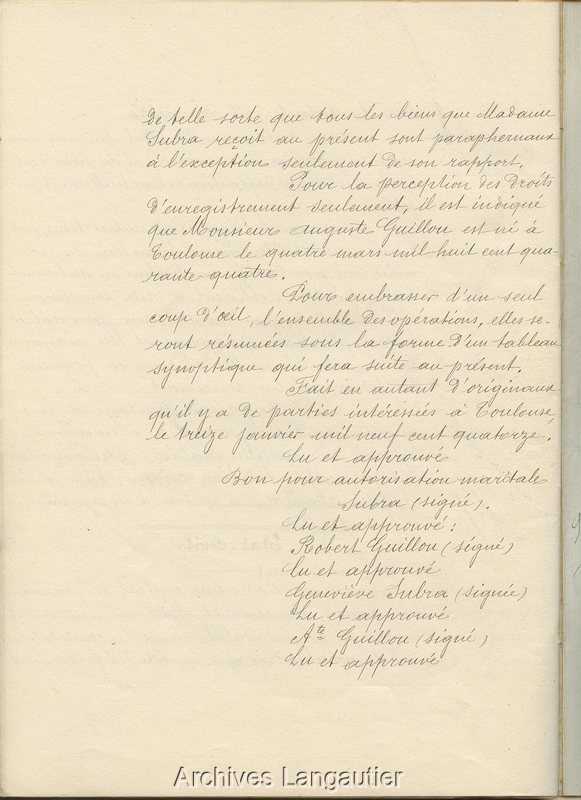 de telle sorte que tous les biens que Madame
Subra reçoit au présent sont paraphernaux
à l'exception seulement de son rapport.
Pour la perception des droits
d'enregistrement seulement, il est indiqué
que Monsieur Auguste Guillou est né à
Toulouse le quatre mars mil huit cent qua-
rante quatre.
Pour embrasser d'un seul
coup d'œil, l'ensemble des opérations, elles se-
ront résumées sous la forme d'un tableau
synoptique qui fera suite au présent.
Fait en autant d'originaux
qu'il y a de parties intéressées à Toulouse,
le treize janvier mil neuf cent quatorze.
Lu et approuvé
Bon pour autorisation maritale
Subra (signé).
Lu et approuvé :
Robert Guillou (signé)
Lu et approuvé
Geneviève Subra (signée)
Lu et approuvé
Ate Guillou (signé)
Lu et approuvé
Archives Langautier